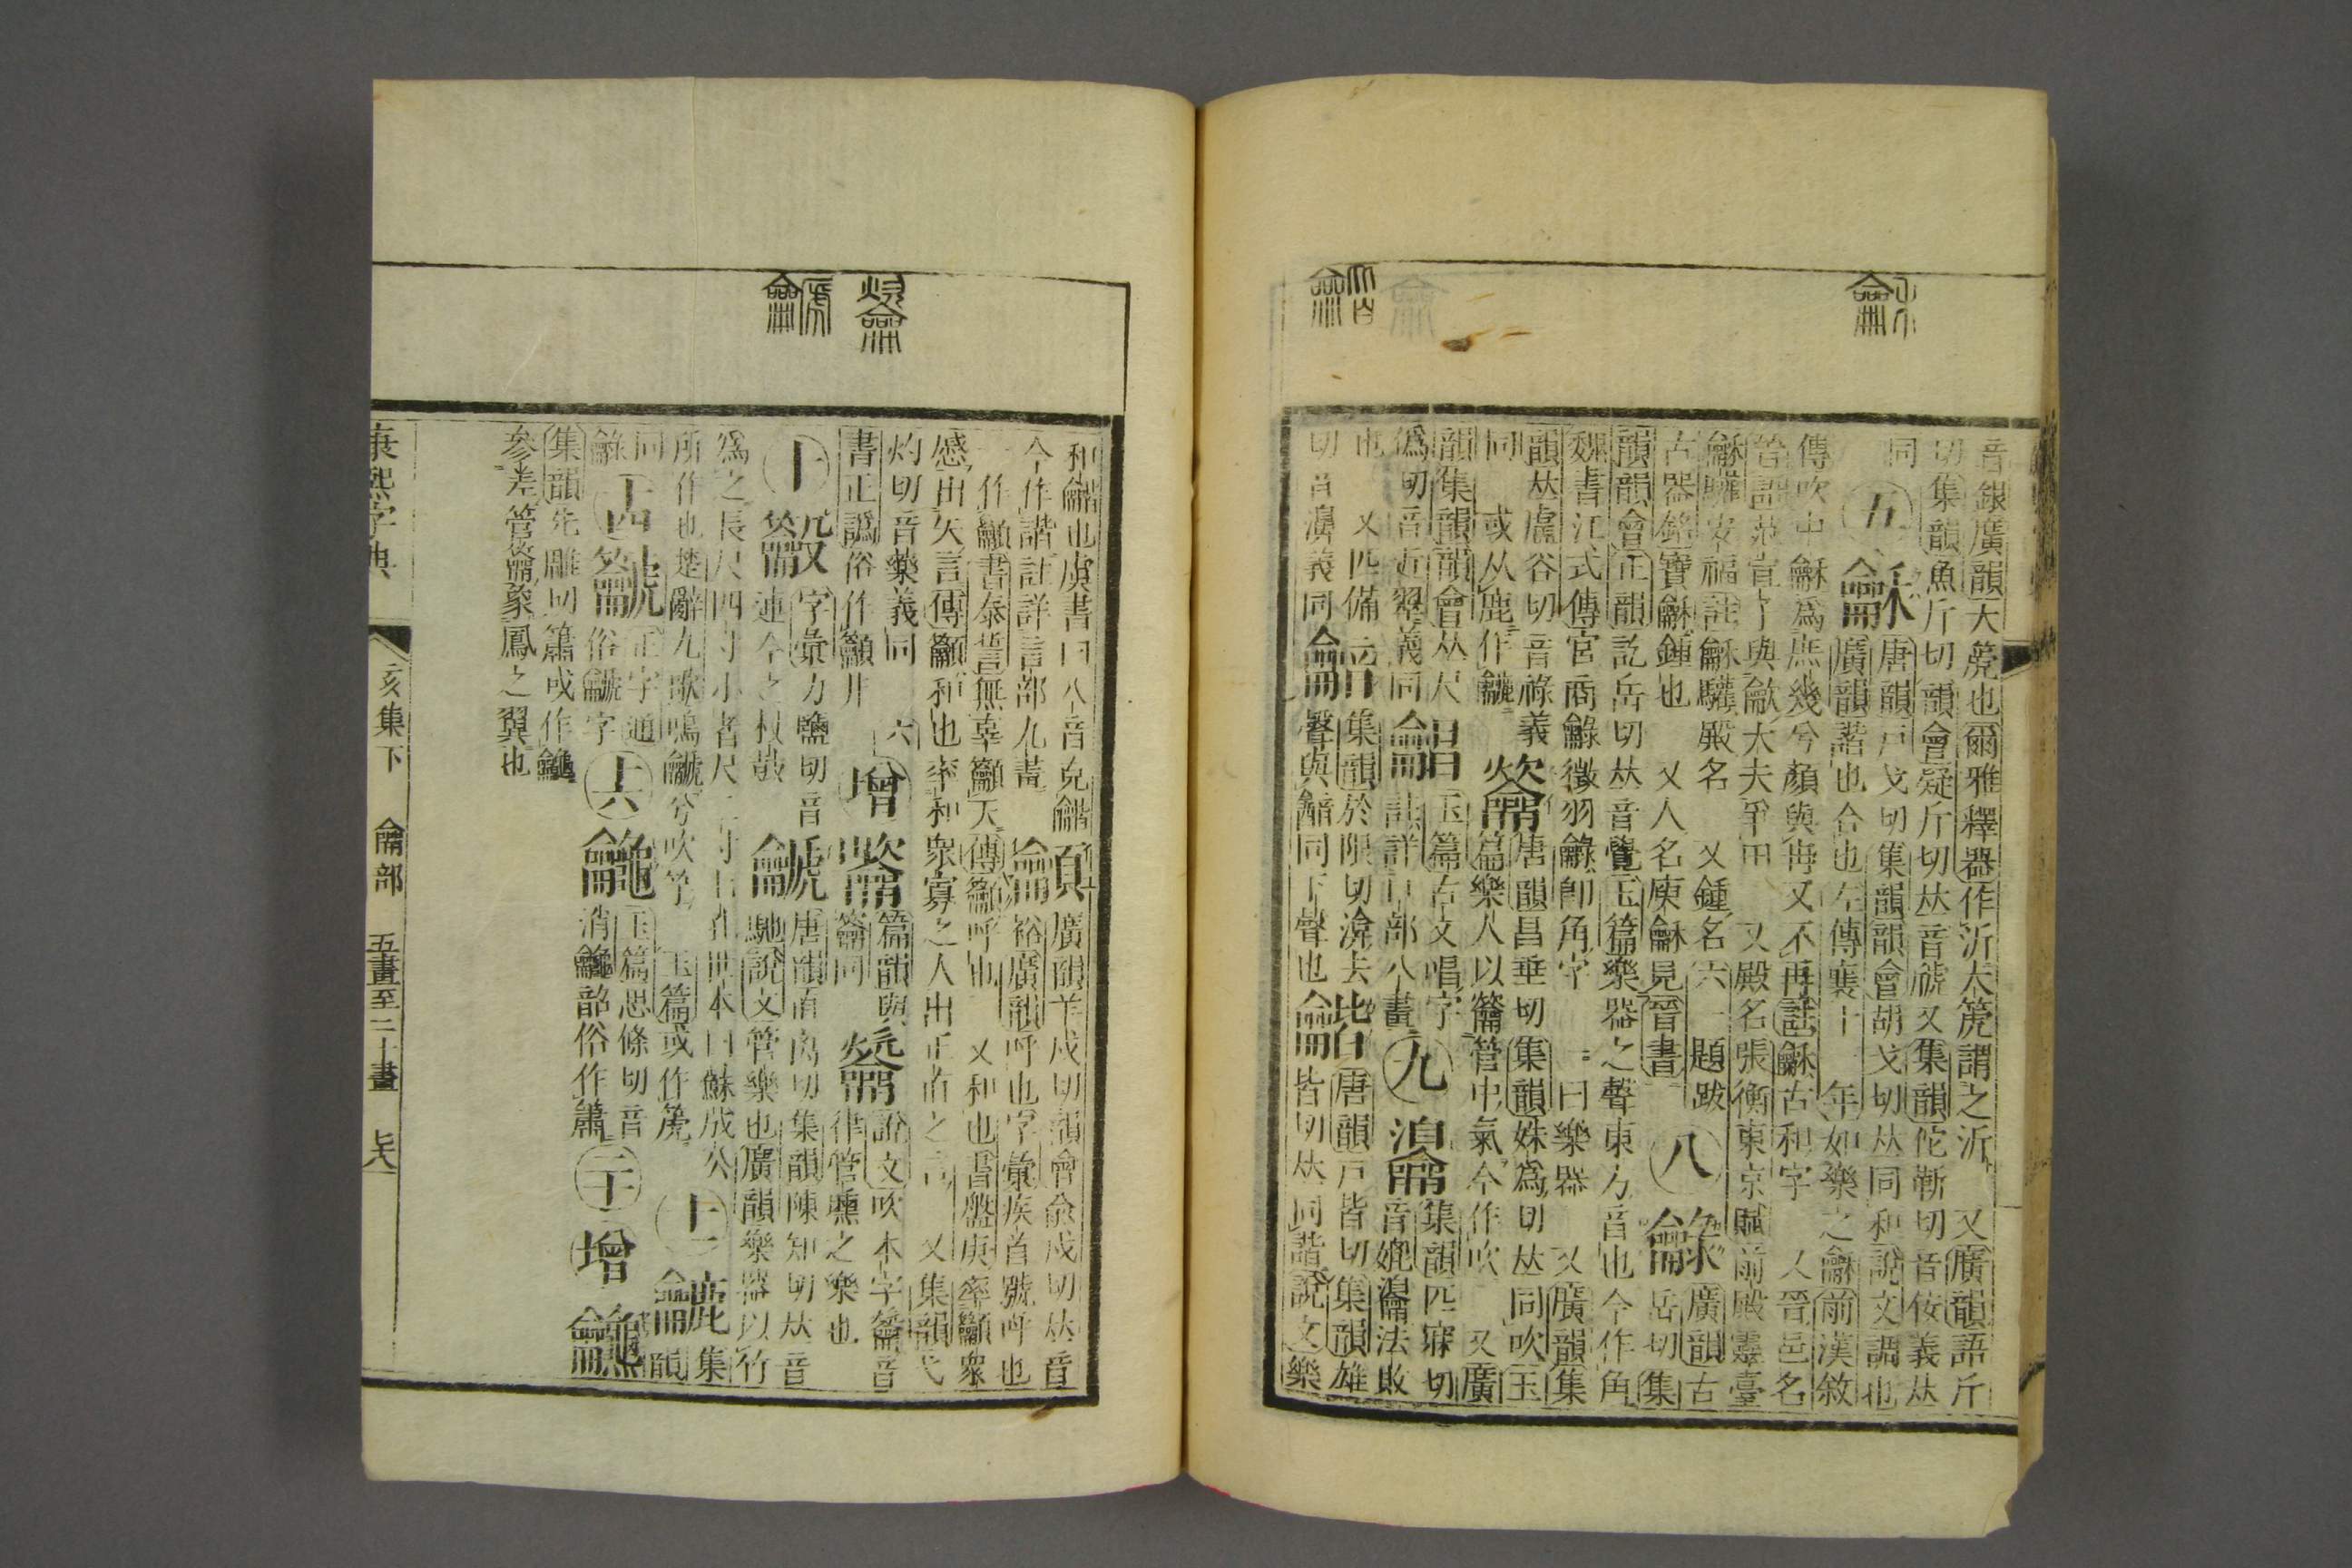 音銀廣韻大箎也爾雅釋器作沂大箎謂之沂 又廣韻語斤
切集韻魚斤切韻會疑斤切𠀤音䖐又集韻佗漸切音㑴義𠀤
同 五 龢 唐韻戸戈切集韻韻會胡戈切𠀤同和說文調也
廣韻諧也合也左傳襄十一年如樂之龢前漢敘
傳吹中龢爲庶幾兮顏與冉又不再註龢古和字 又晉邑名
晉語范宣子與龢大夫爭田 又殿名張衡東京賦前殿靈臺
龢驩安福註龢驩殿名 又鍾名六一題跋
古器銘寶龢鍾也 又人名庾龢見晉書 八 龣 廣韻古
岳切集
韻韻會正韻訖岳切𠀤音覺玉篇樂器之聲東方音也今作角
魏書江式傳宮商龣徵羽龣卽角字 一曰樂器 又廣韻集
韻𠀤盧谷切音祿義
同 或从鹿作䶫 龡 唐韻昌垂切集韻姝爲切𠀤同吹玉
篇樂人以籥管中氣今作吹 又廣
韻集韻韻會𠀤尺
僞切音近翠義同 龥 玉篇古文唱字
註詳口部八畫 九 集韻匹寐切
音媲 法敗
也 又匹備
切音濞義同 集韻於限切 去
聲與 同下聲也 龤 唐韻戸皆切集韻雄
皆切𠀤同諧說文樂
和龤也虞書曰八音克龤
今作諧註詳言部九畫 龥 廣韻羊戍切韻會兪戍切𠀤音
裕廣韻呼也字彙疾首號呼也
一作籲書泰誓無辜籲天傳籲呼也 又和也書盤庚率籲衆
慼出矢言傳籲和也率和衆寡之人出正直之言 又集韻弋
灼切音藥義同 六
書正譌俗作籲非 增 篇韻與
籥同 龡 說文吹本字籥音
律管壎之樂也
十 字彙力鹽切音
連今之杖鼓 䶵 唐韻直离切集韻陳知切𠀤音
馳說文管樂也廣韻樂器以竹
爲之長尺四寸小者尺二寸七孔世本曰蘇成公
所作也楚辭九歌鳴䶵兮吹竽 玉篇或作箎 十一 䶫 集
韻
同
龣 十四 正字通
俗䶵字 十六 玉篇思條切音
消 韶俗作簫 二十 增
集韻先雕切簫或作
參差管籥象鳳之翼也
康熙字典 亥集下 龠部 五畫至二十畫 大